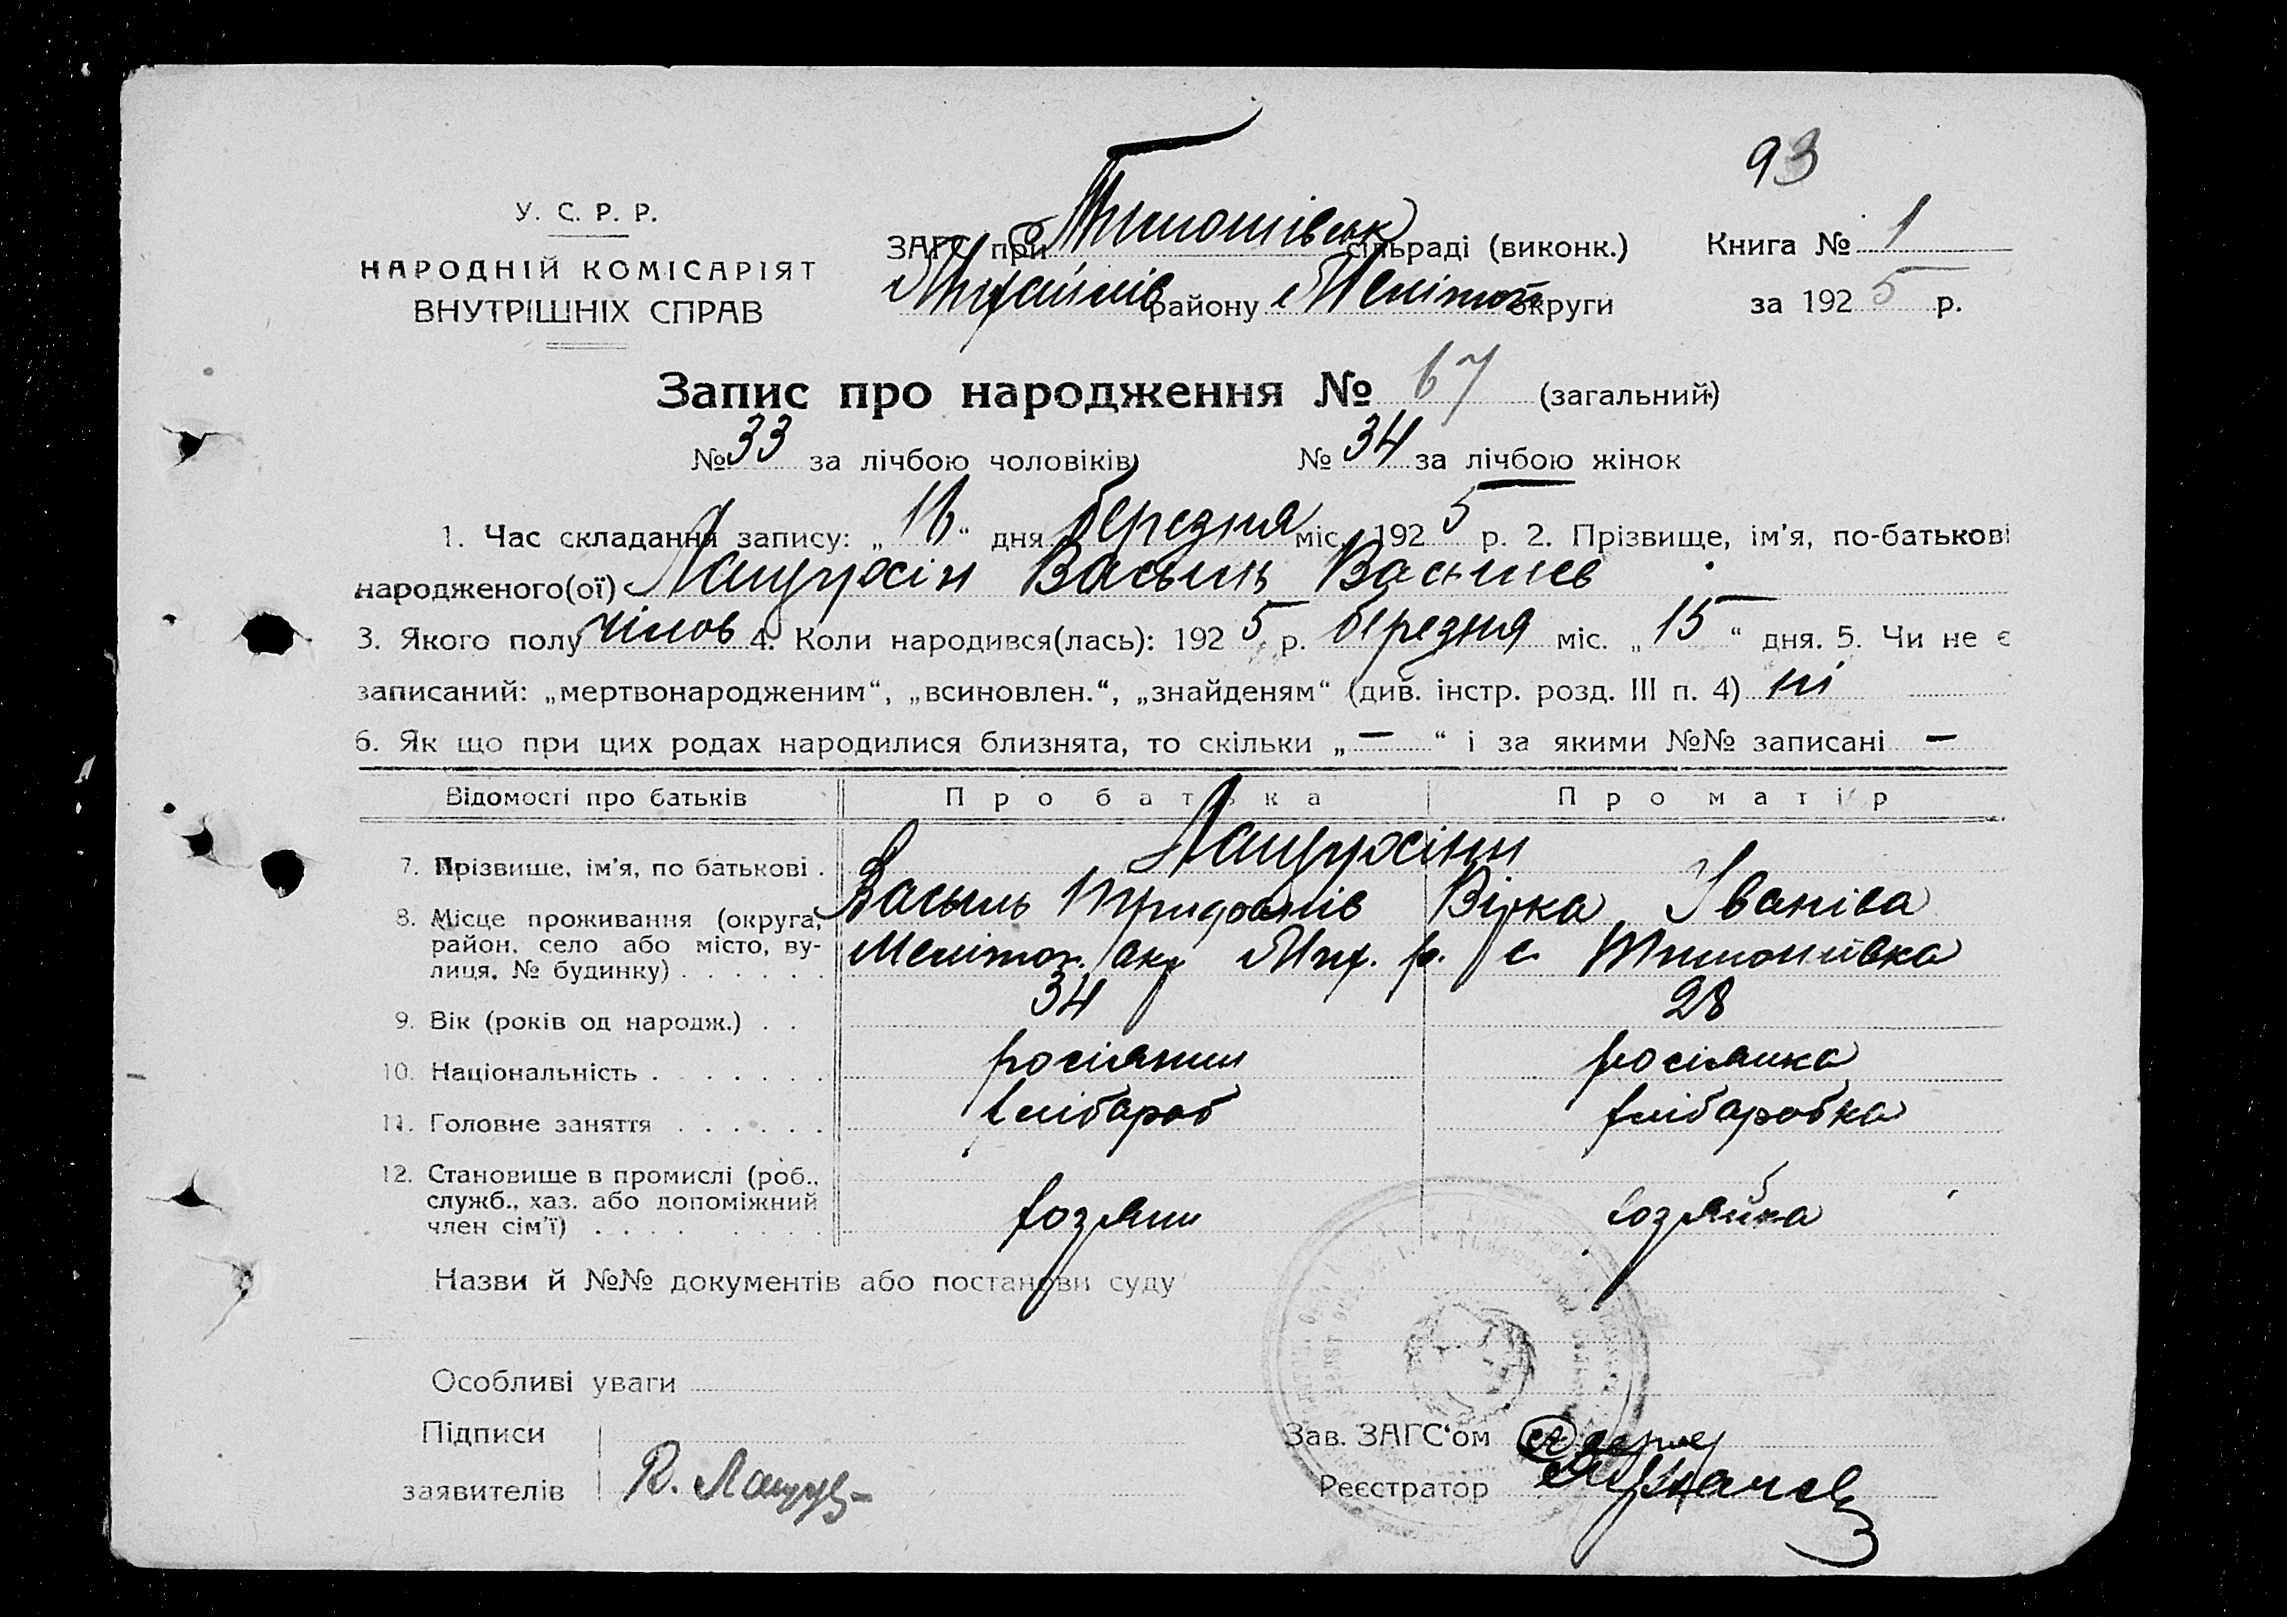 93
У. С. Р. Р.
НАРОДНІЙ КОМІСАРІЯТ
ВНУТРІШНІХ СПРАВ
ЗАГС при Тимошівськ сільраді (виконк.)
Михайлів району Меліто округи
Книга № 1
за 1925 р.
Запис про народження № 67 (загальний)
№ 33 за лічбою чоловіків № 34 за лічбою жінок
1. Час складання запису: „16“ дня березня міс. 1925 р. 2. Прізвище, ім'я, по-батькові
народженого(ої) Василь Васильев
3. Якого полу чілов 4. Коли народився(лась): 1925 р. березня міс. „15“ дня. 5. Чи не є
записаний: „мертвонародженим“, „всиновлен.“, „знайденям“ (див. інстр. розд. III п. 4) ні
6. Як що при цих родах народилися близнята, то скільки „—“ і за якими №№ записані —
Відомості про батьків Про батька Про матір
7. Прізвище, ім'я, по батькові .
Василь Трифонів Вірка Іваніва
8. Місце проживання (округа, район, село або місто, вулиця, № будинку) . . . . . . Меліпоп. окр Мих. р. с. Тимошівка
9. Вік (років од народж.) . . 34 28
10. Національність . . . . . . . росіянин росіянка
11. Головне заняття . . . . . . хлібароб хлібаробка
12. Становище в промислі (роб., служб., хаз. або допоміжний член сім'ї) . . . . хозяин хозяйка
Назви й №№ документів або постанови суду
Особливі уваги
Підписи
заявителів
Зав. ЗАГС'ом
Реєстратор